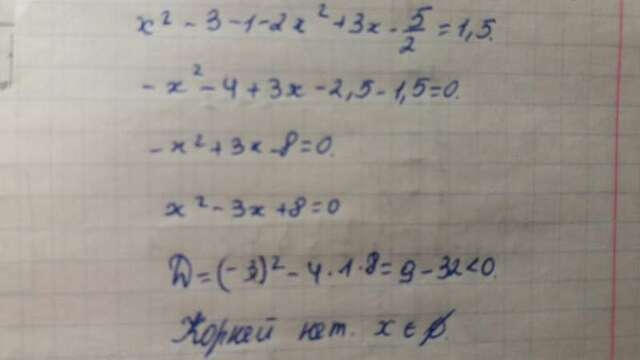 x² - 3 - 1 - 2x² + 3x - 5/2 = 1,5.
- x² - 4 + 3x - 2,5 - 1,5 = 0.
- x² + 3x - 8 = 0.
x² - 3x + 8 = 0
D = (-3)² - 4 · 1 · 8 = 9 - 32 < 0.
Корней нет. x ∈ ∅.